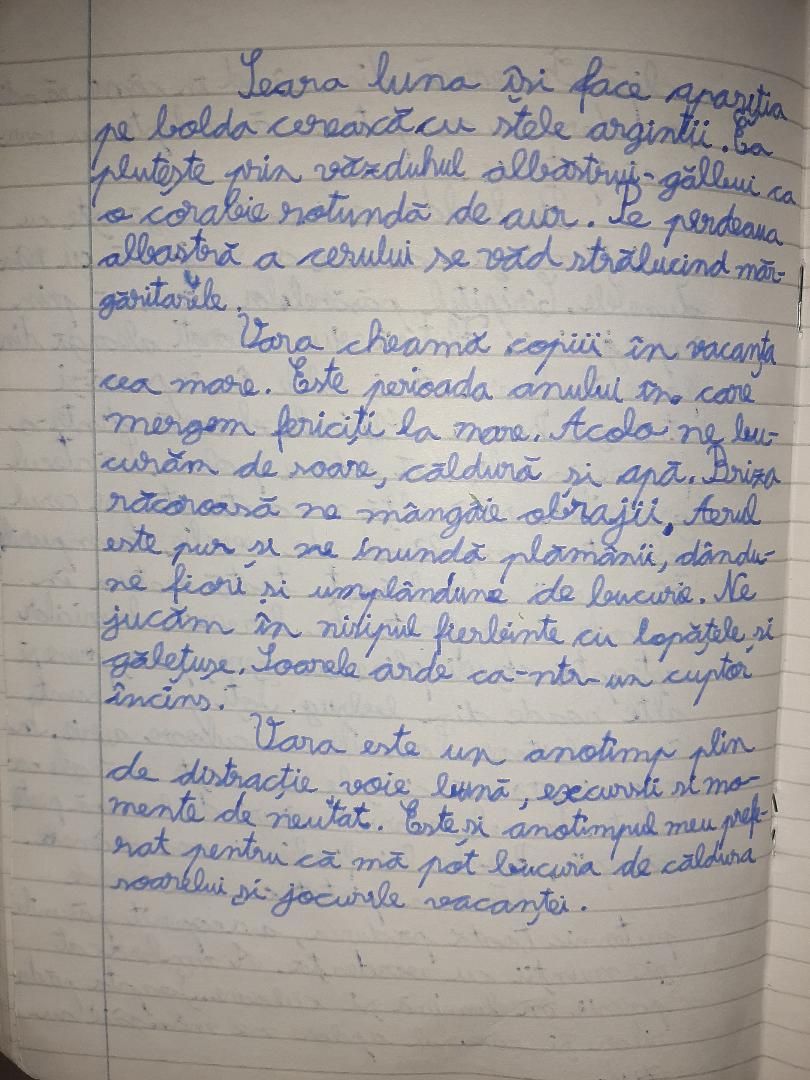 Seara luna își face apariția
pe bolda cerească cu stele argintii. Ea
plutește prin văzduhul albăstrui-gălbui ca
o corabie rotundă de aur. Pe perdeaua
albastră a cerului se văd strălucind măr-
găritarele.
Vara cheamă copiii în vacanța
cea mare. Este perioada anului în care
mergem fericiți la mare. Acolo ne bu-
curăm de soare, căldură și apă. Briza
răcoroasă ne mângâie obrajii. Aerul
este pur și ne inundă plămânii, dându-
ne fiori și umplândune de bucurie. Ne
jucăm în nisipul fierbinte cu lopățele și
gălețușe. Soarele arde ca-ntr-un cuptor
încins.
Vara este un anotimp plin
de distracție voie bună, excursii si mo-
mente de neuitat. Este și anotimpul meu prefe-
rat pentru că mă pot bucura de căldura
soarelui și jocurile vacanței.